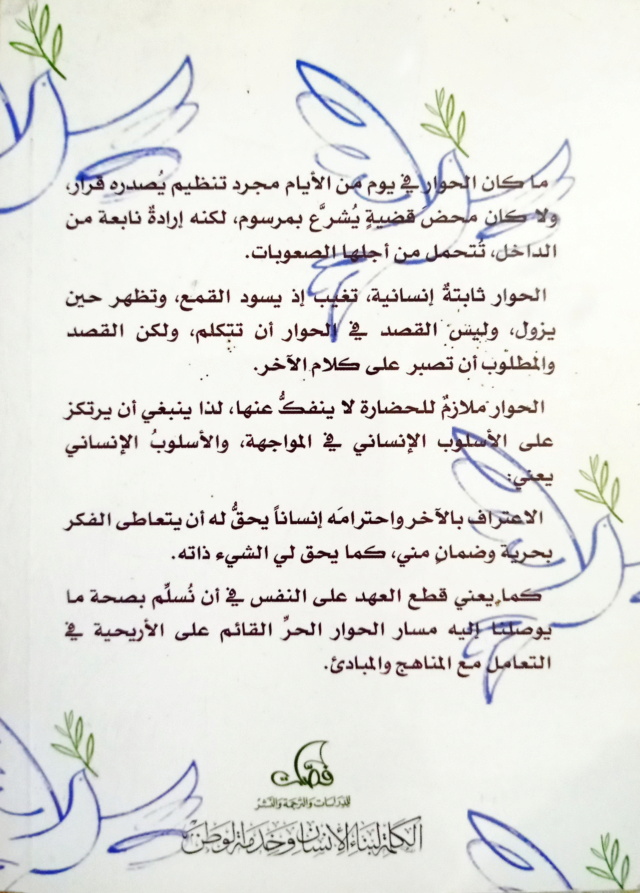 ما كان الحوار في يوم من الأيام مجرد تنظيم يُصدره قرار،
ولا كان محض قضيةٍ يُشرَّع بمرسوم، لكنه إرادةٌ نابعة من
الداخل، تُتحمل من أجلها الصعوبات.
الحوار ثابتةٌ إنسانية، تغيب إذ يسود القمع، وتظهر حين
يزول، وليس القصد في الحوار أن تتكلم، ولكن القصد
والمطلوب أن تصبر على كلام الآخر.
الحوار ملازمٌ للحضارة لا ينفكُّ عنها، لذا ينبغي أن يرتكز
على الأسلوب الإنساني في المواجهة، والأسلوبُ الإنساني
يعني:
الاعتراف بالآخر واحترامَه إنساناً يحقُّ له أن يتعاطى الفكر
بحرية وضمانٍ مني، كما يحق لي الشيء ذاته.
كما يعني قطع العهد على النفس في أن نُسلِّم بصحة ما
يوصلنا إليه مسار الحوار الحرِّ القائم على الأريحية في
التعامل مع المناهج والمبادئ.
فصّلت
للدراسات والترجمة والنشر
الكلمة لبناء الإنسان وخدمة الوطن